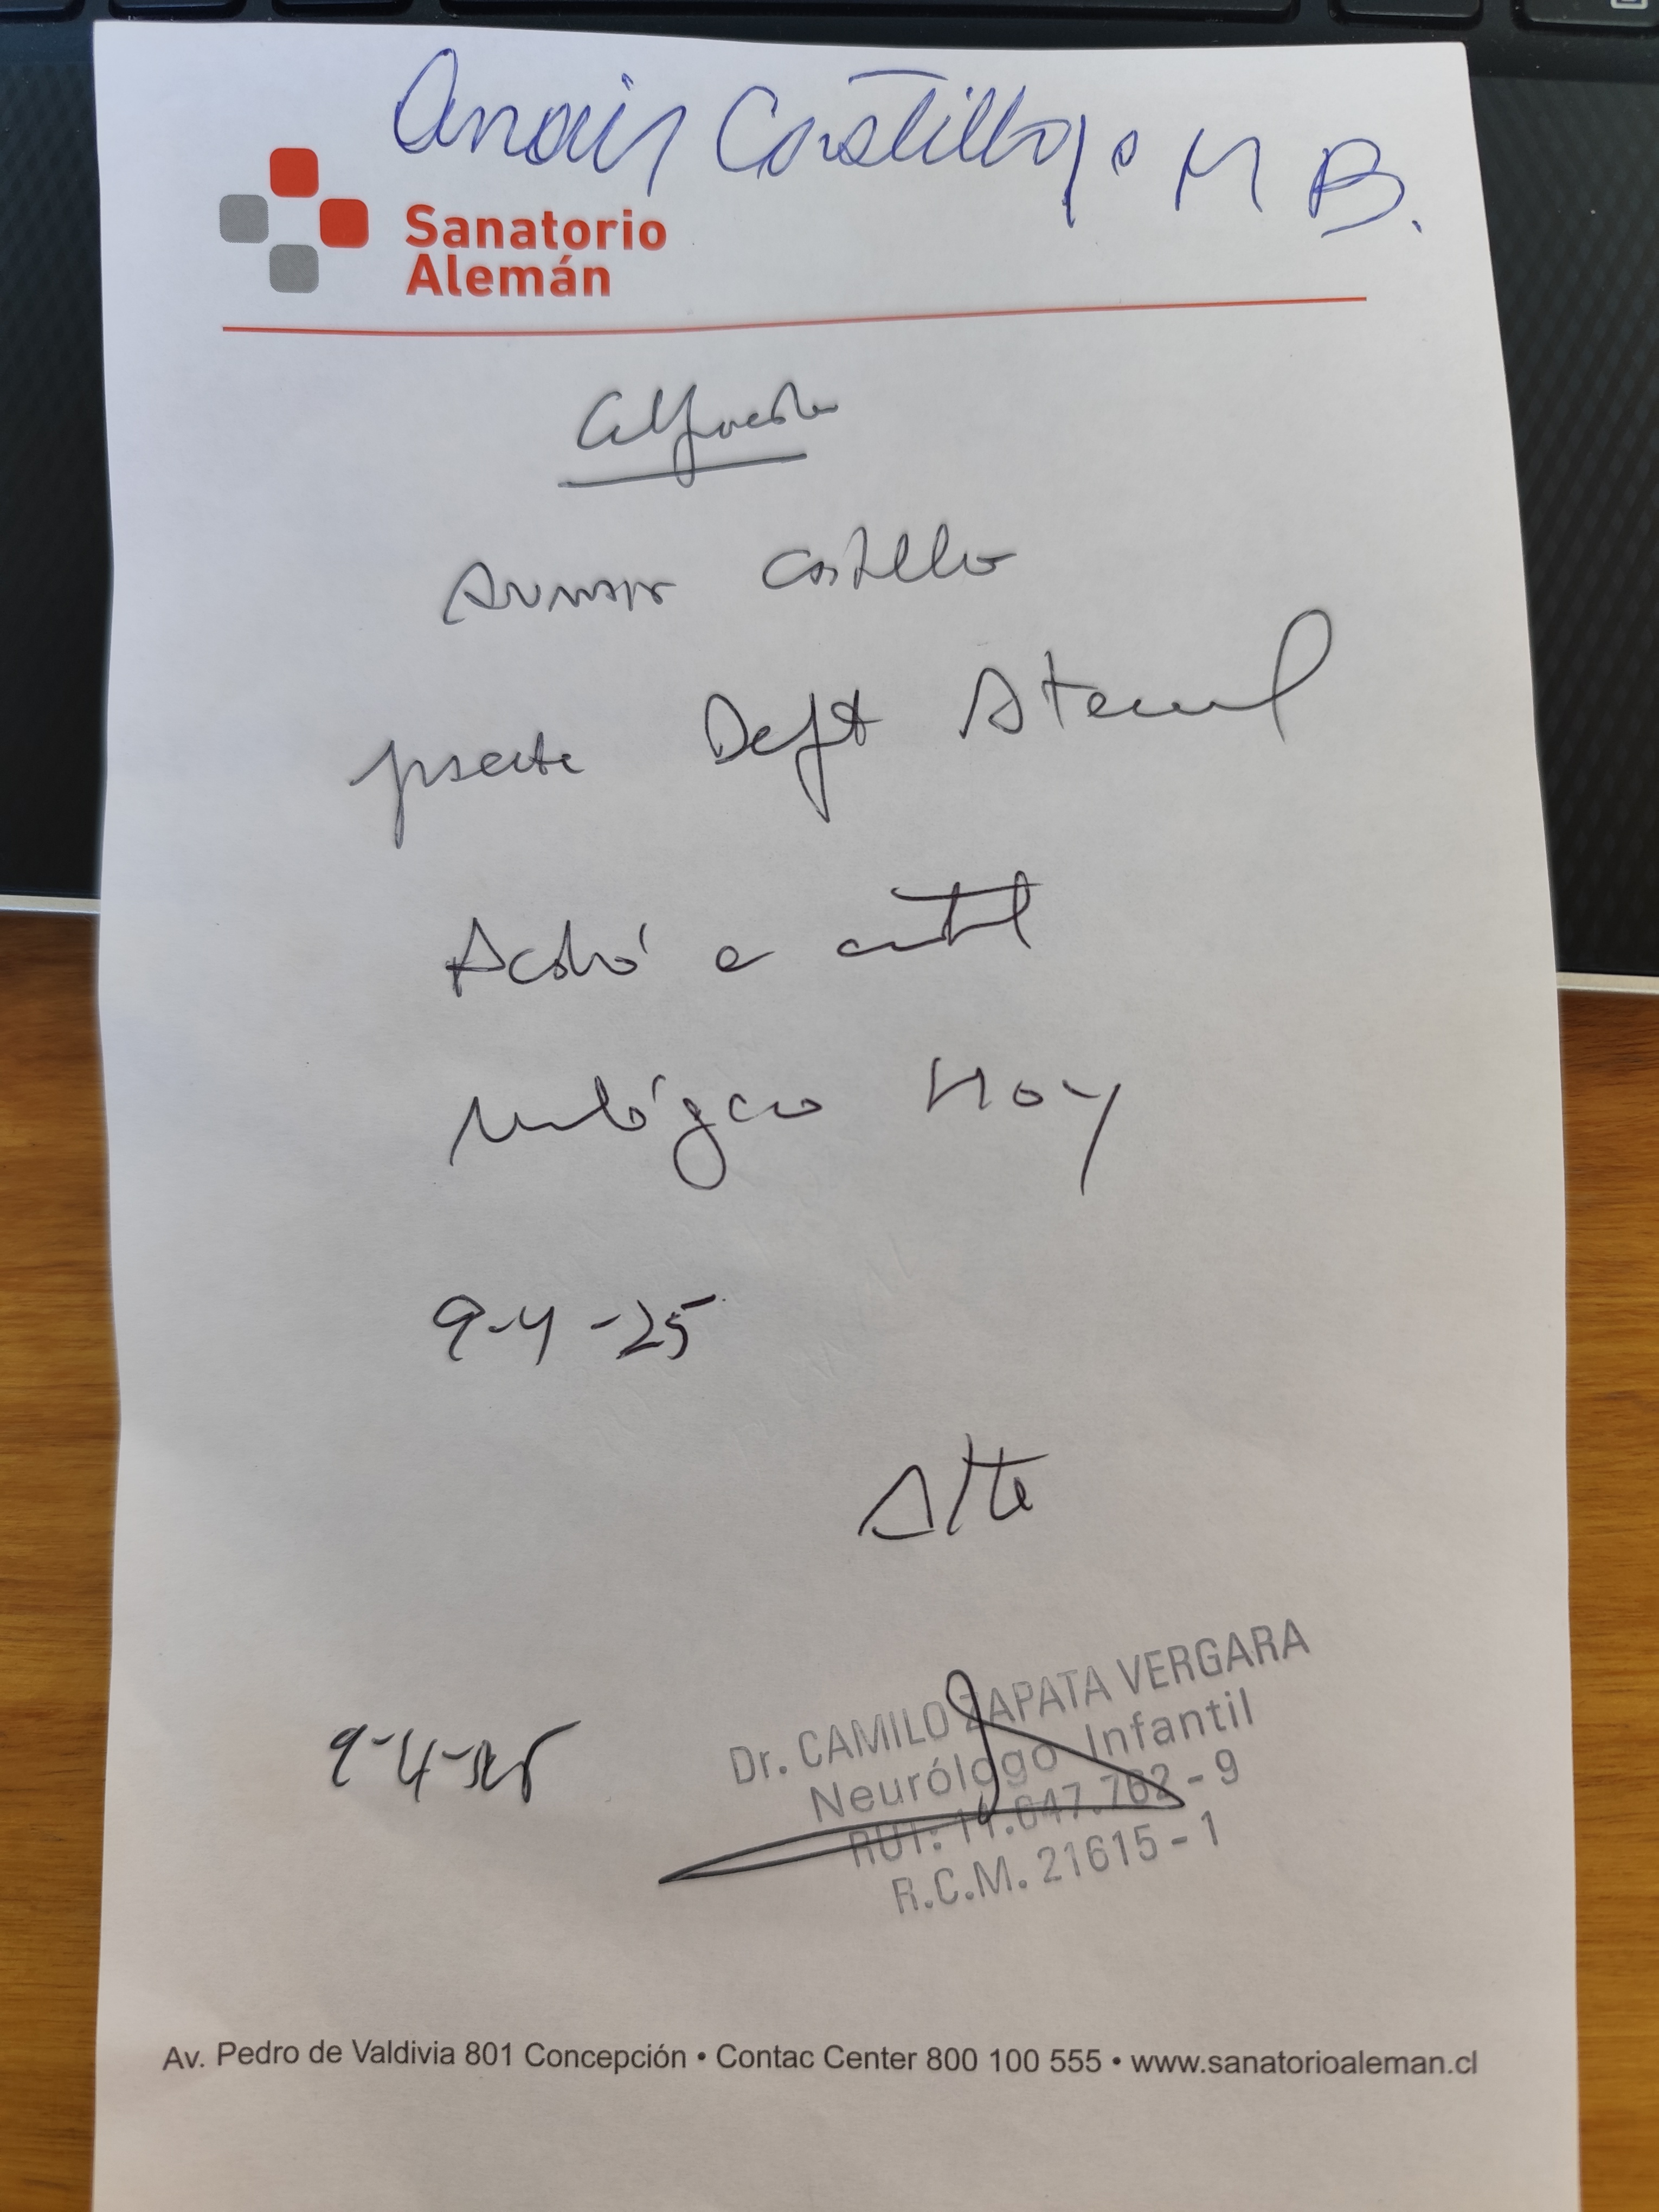 Anais Castillo, M B.
Sanatorio
Alemán
Certificado
Anais Castillo
presenta Deft Atencional
Acudió a control
neurológico Hoy
9-4-25
Atte
9-4-25
Dr. CAMILO ZAPATA VERGARA
Neurólogo Infantil
RUT: 11.647.762-9
R.C.M. 21615-1
Av. Pedro de Valdivia 801 Concepción • Contac Center 800 100 555 • www.sanatorioaleman.cl